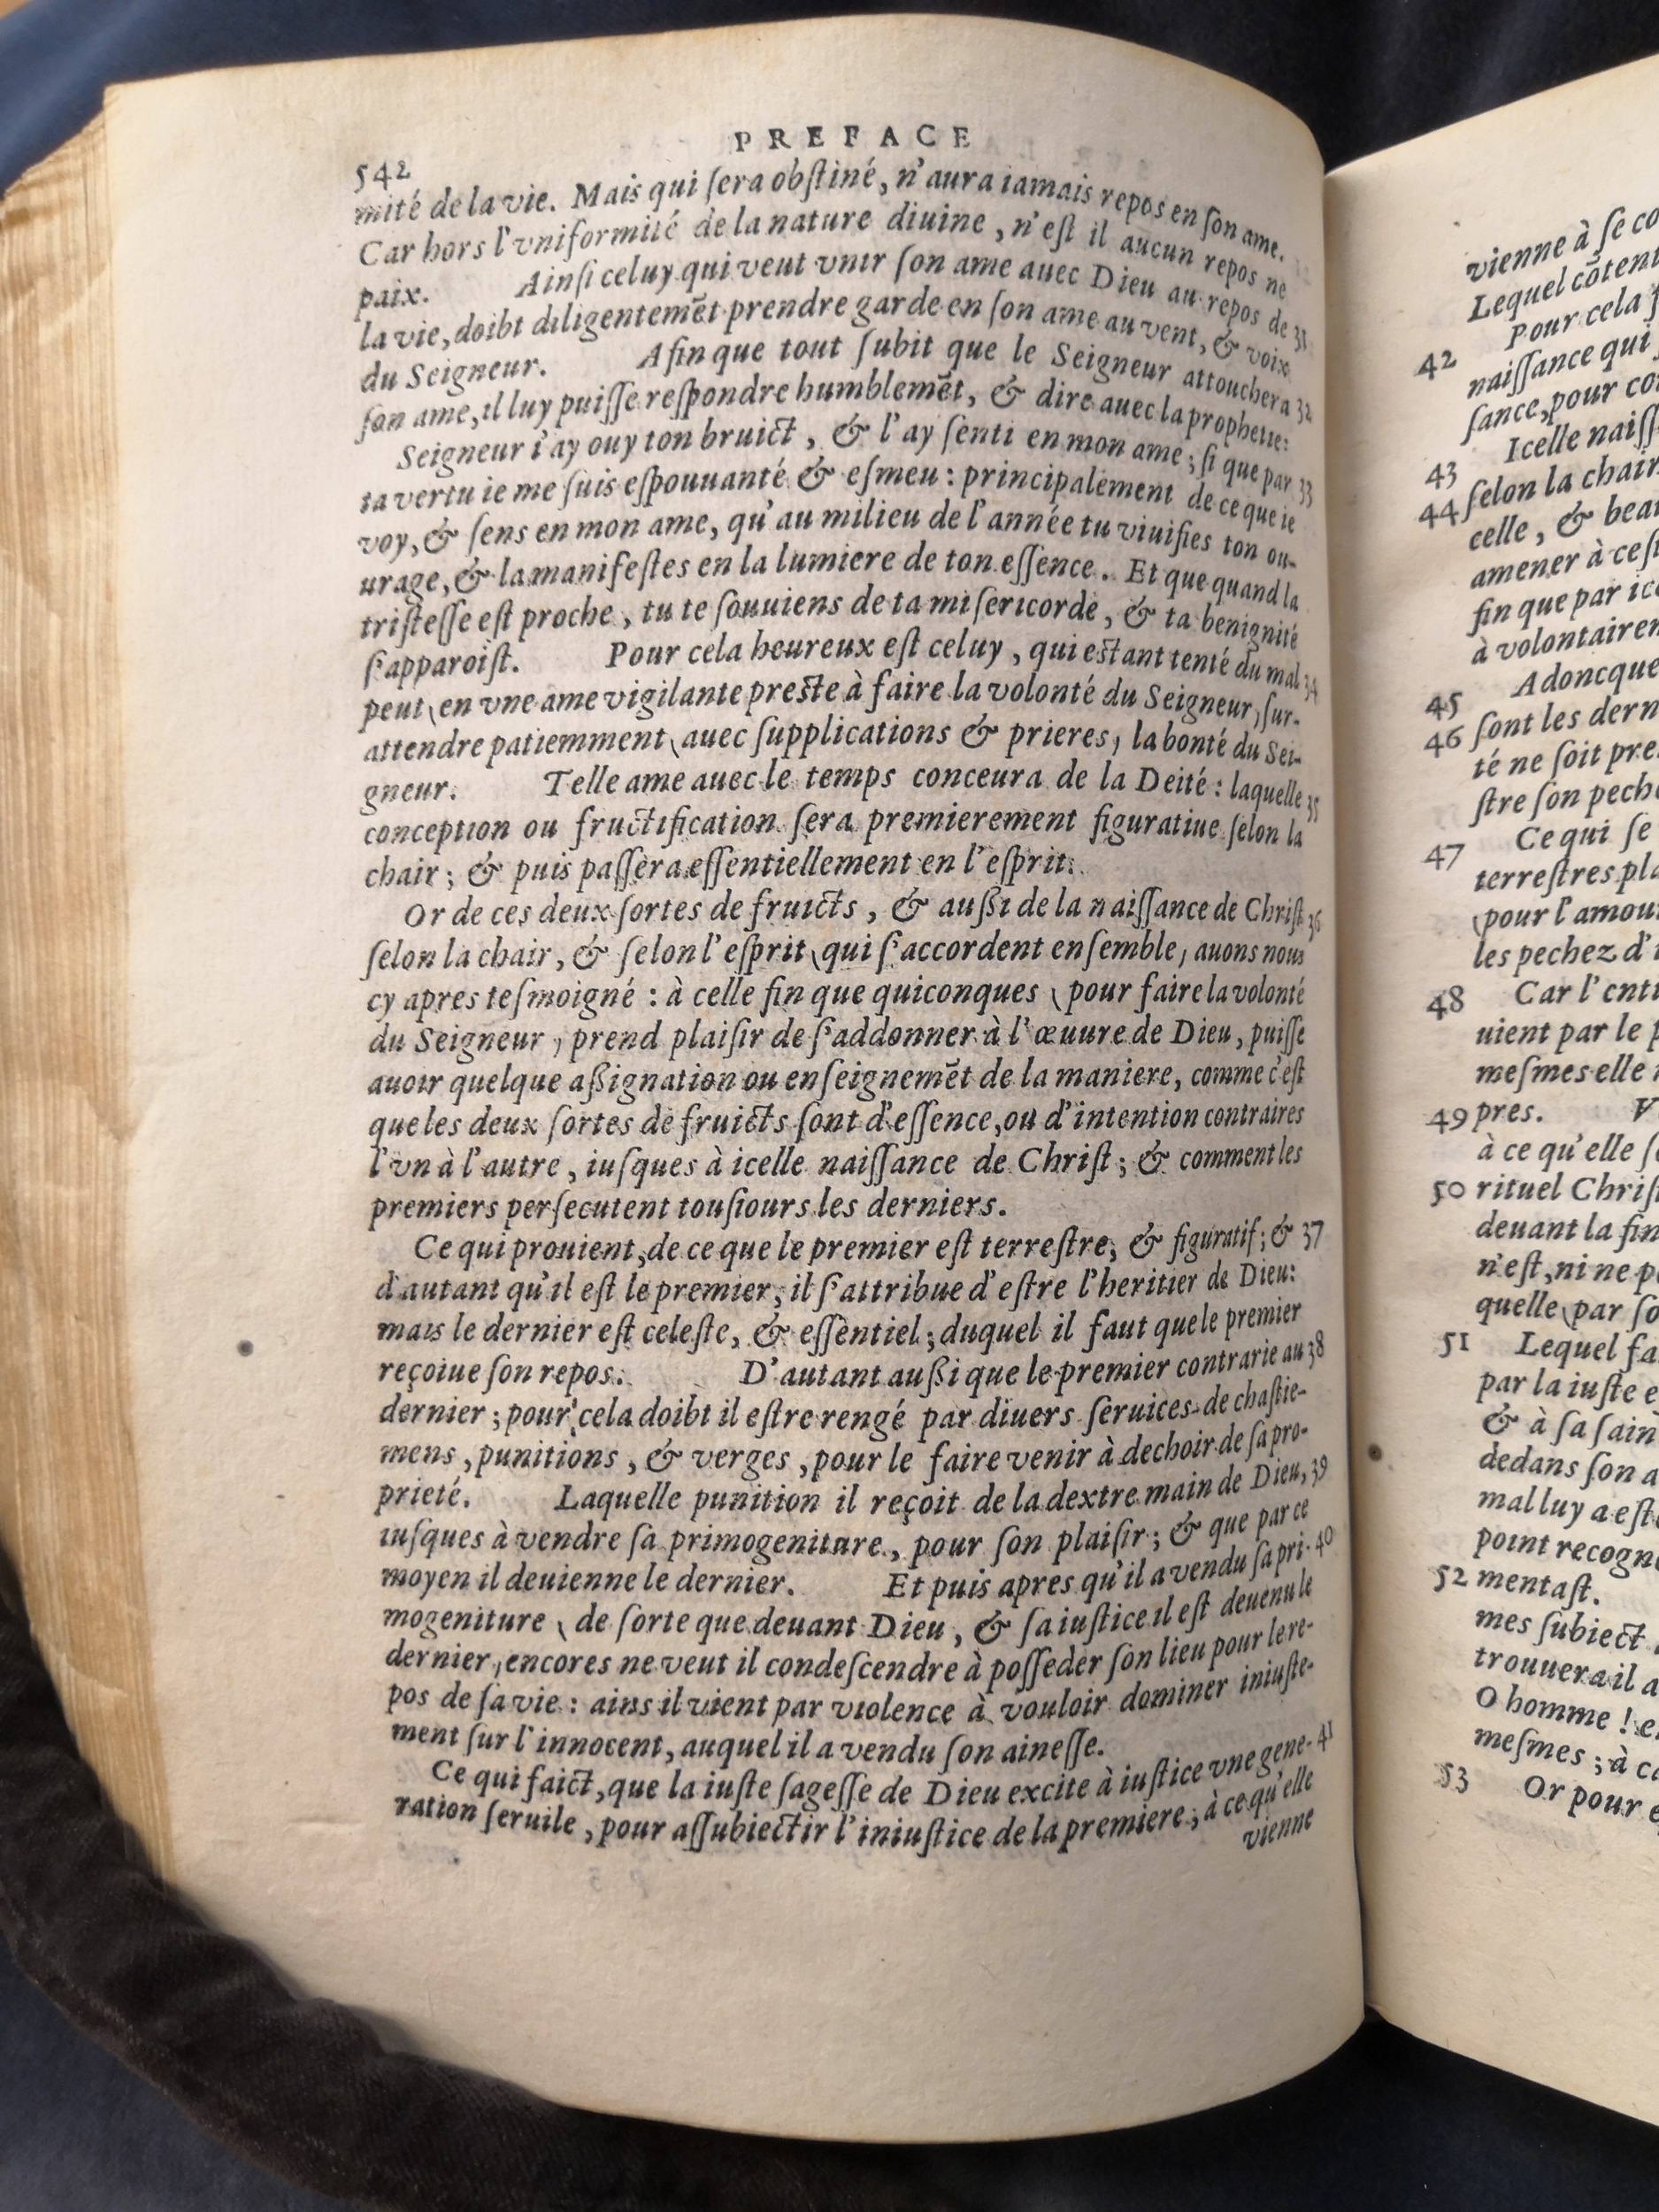 PREFACE
542
mité de la vie. Mais qui ſera obſtiné, n'aura iamais repos en ſon ame.
Car hors l'vniformité de la nature diuine, n'eſt il aucun repos ne
paix. Ainſi celuy qui veut vnir ſon ame auec Dieu au repos de 31
la vie, doibt diligentemēt prendre garde en ſon ame au vent, & voix
du Seigneur. Afin que tout ſubit que le Seigneur attouchera 32
ſon ame, il luy puiſſe reſpondre humblemēt, & dire auec la prophetie:
Seigneur i'ay ouy ton bruict, & l'ay ſenti en mon ame; ſi que par 33
ta vertu ie me ſuis eſpouuanté & eſmeu: principalement de ce que ie
voy, & ſens en mon ame, qu'au milieu de l'année tu viuifies ton ou-
urage, & la manifeſtes en la lumiere de ton eſſence. Et que quand la
triſteſſe eſt proche, tu te ſouuiens de ta miſericorde, & ta benignité
ſ'apparoiſt. Pour cela heureux eſt celuy, qui eſtant tenté du mal 34
peut (en vne ame vigilante preſte à faire la volonté du Seigneur) ſur-
attendre patiemment (auec ſupplications & prieres) la bonté du Sei-
gneur. Telle ame auec le temps conceura de la Deité: laquelle 35
conception ou fructification ſera premierement figuratiue ſelon la
chair; & puis paſſera eſſentiellement en l'eſprit.
Or de ces deux ſortes de fruicts, & auſſi de la naiſſance de Chriſt 36
ſelon la chair, & ſelon l'eſprit (qui ſ'accordent enſemble) auons nous
cy apres teſmoigné: à celle fin que quiconques (pour faire la volonté
du Seigneur) prend plaiſir de ſ'addonner à l'œuure de Dieu, puiſſe
auoir quelque aſſignation ou enſeignemēt de la maniere, comme c'eſt
que les deux ſortes de fruicts ſont d'eſſence, ou d'intention contraires
l'vn à l'autre, iuſques à icelle naiſſance de Chriſt; & comment les
premiers perſecutent touſiours les derniers.
Ce qui prouient, de ce que le premier eſt terreſtre, & figuratif; & 37
d'autant qu'il eſt le premier, il ſ'attribue d'eſtre l'heritier de Dieu:
mais le dernier eſt celeſte, & eſſentiel; duquel il faut que le premier
reçoiue ſon repos. D'autant auſſi que le premier contrarie au 38
dernier; pour cela doibt il eſtre rengé par diuers ſeruices de chaſtie-
mens, punitions, & verges, pour le faire venir à dechoir de ſa pro-
prieté. Laquelle punition il reçoit de la dextre main de Dieu, 39
iuſques à vendre ſa primogeniture, pour ſon plaiſir; & que par ce
moyen il deuienne le dernier. Et puis apres qu'il a vendu ſa pri- 40
mogeniture (de ſorte que deuant Dieu, & ſa iuſtice il eſt deuenu le
dernier) encores ne veut il condeſcendre à poſſeder ſon lieu pour le re-
pos de ſa vie: ains il vient par violence à vouloir dominer iniuſte-
ment ſur l'innocent, auquel il a vendu ſon aineſſe.
Ce qui faict, que la iuſte ſageſſe de Dieu excite à iuſtice vne gene- 41
ration ſeruile, pour aſſubiectir l'iniuſtice de la premiere; à ce qu'elle
vienne
vienne à ſe co
Lequel cōtent
42 Pour cela
naiſſance qui
ſance, pour co
43 Icelle naiſſ
44 ſelon la chair
celle, & beau
amener à ceſ
fin que par ic
à volontaire
45 Adoncque
46 ſont les dern
té ne ſoit pre
ſtre ſon pech
47 Ce qui ſe
terreſtres pla
(pour l'amou
les pechez d'
48 Car l'enti
uient par le p
meſmes elle
49 pres. V
à ce qu'elle ſ
50 rituel Chriſ
deuant la fin
n'eſt, ni ne p
quelle (par ſo
51 Lequel fa
par la iuſte e
& à ſa ſain
dedans ſon a
mal luy a eſt
point recogn
52 mentaſt.
mes ſubiect
trouuera il a
O homme! e
meſmes; à c
53 Or pour e